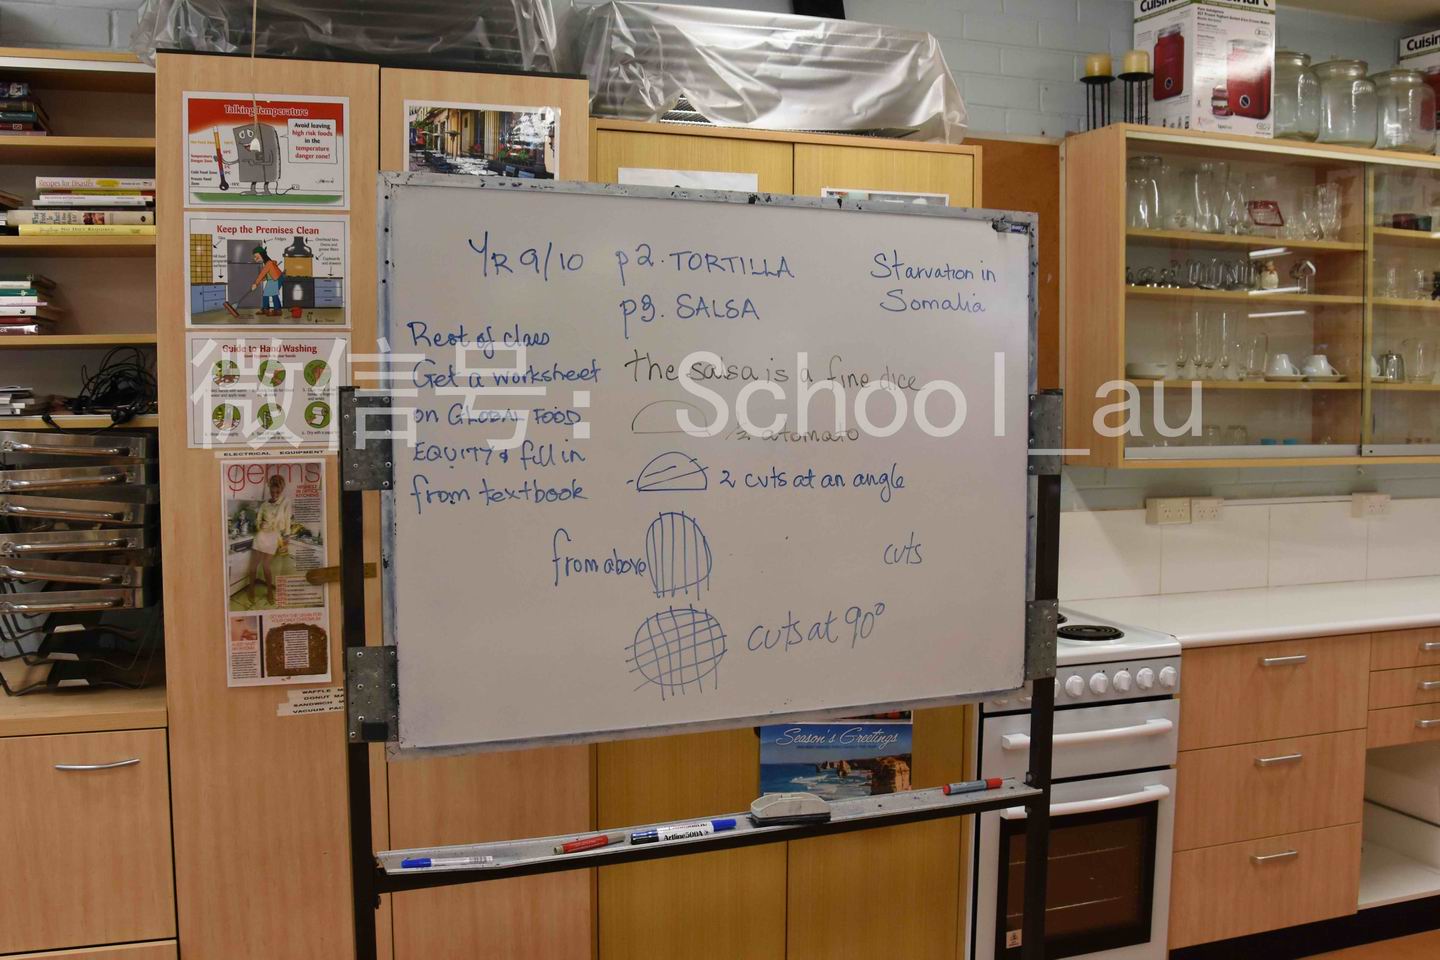 Cuisinart
Cuisin
Talking Temperature
Avoid leaving
high risk foods
in the
temperature
danger zone!
Recipes for Disaster
Keep the Premises Clean
Guide to Hand Washing
ELECTRICAL EQUIPMENT
germs
YR 9/10 p2. TORTILLA
p3. SALSA
Starvation in
Somalia
Rest of class
Get a worksheet
on GLOBAL FOOD
EQUITY & fill in
from textbook
the salsa is a fine dice
1/2 a tomato
2 cuts at an angle
from above
cuts
cuts at 90°
微信号: School_au
WAFFLE M
DONUT MA
SANDWICH M
VACUUM PAC
Season's Greetings
Artline 500A